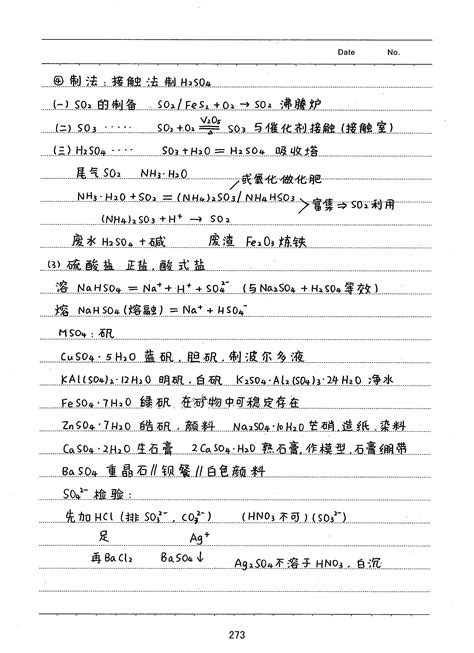 Date No.
④ 制法：接触法制H₂SO₄
(一) SO₂的制备 SO₂/FeS₂+O₂ → SO₂ 沸腾炉
(二) SO₃ ····· SO₂+O₂ V₂O₅ ⇌ △ SO₃ 与催化剂接触(接触室)
(三) H₂SO₄ ···· SO₃+H₂O = H₂SO₄ 吸收塔
尾气SO₂ NH₃·H₂O
或氧化做化肥
NH₃·H₂O+SO₂ = (NH₄)₂SO₃/NH₄HSO₃ 富集⇒SO₂利用
(NH₄)₂SO₃+H⁺ → SO₂
废水H₂SO₄+碱 废渣 Fe₂O₃炼铁
(3) 硫酸盐 正盐,酸式盐
溶 NaHSO₄ = Na⁺+H⁺+SO₄²⁻ (与Na₂SO₄+H₂SO₄等效)
熔 NaHSO₄(熔融) = Na⁺+HSO₄⁻
MSO₄：矾
CuSO₄·5H₂O 蓝矾，胆矾，制波尔多液
KAl(SO₄)₂·12H₂O 明矾，白矾 K₂SO₄·Al₂(SO₄)₃·24H₂O 净水
FeSO₄·7H₂O 绿矾 在矿物中可稳定存在
ZnSO₄·7H₂O 皓矾，颜料 Na₂SO₄·10H₂O芒硝,造纸,染料
CaSO₄·2H₂O 生石膏 2CaSO₄·H₂O 熟石膏,作模型,石膏绷带
BaSO₄ 重晶石//钡餐//白色颜料
SO₄²⁻检验：
先加HCl(排SO₃²⁻,CO₃²⁻) (HNO₃不可)(SO₃²⁻)
足 Ag⁺
再BaCl₂ BaSO₄↓ Ag₂SO₄不溶于HNO₃，白沉
273